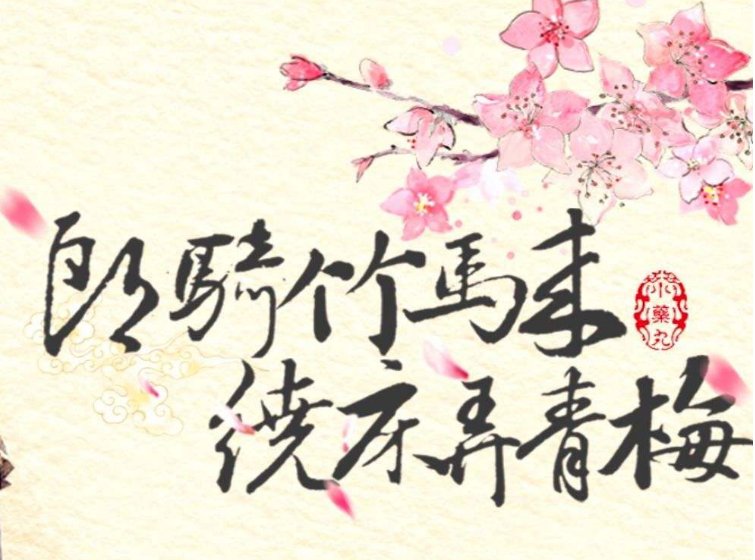 郎騎竹馬来
小藥丸
繞床弄青梅